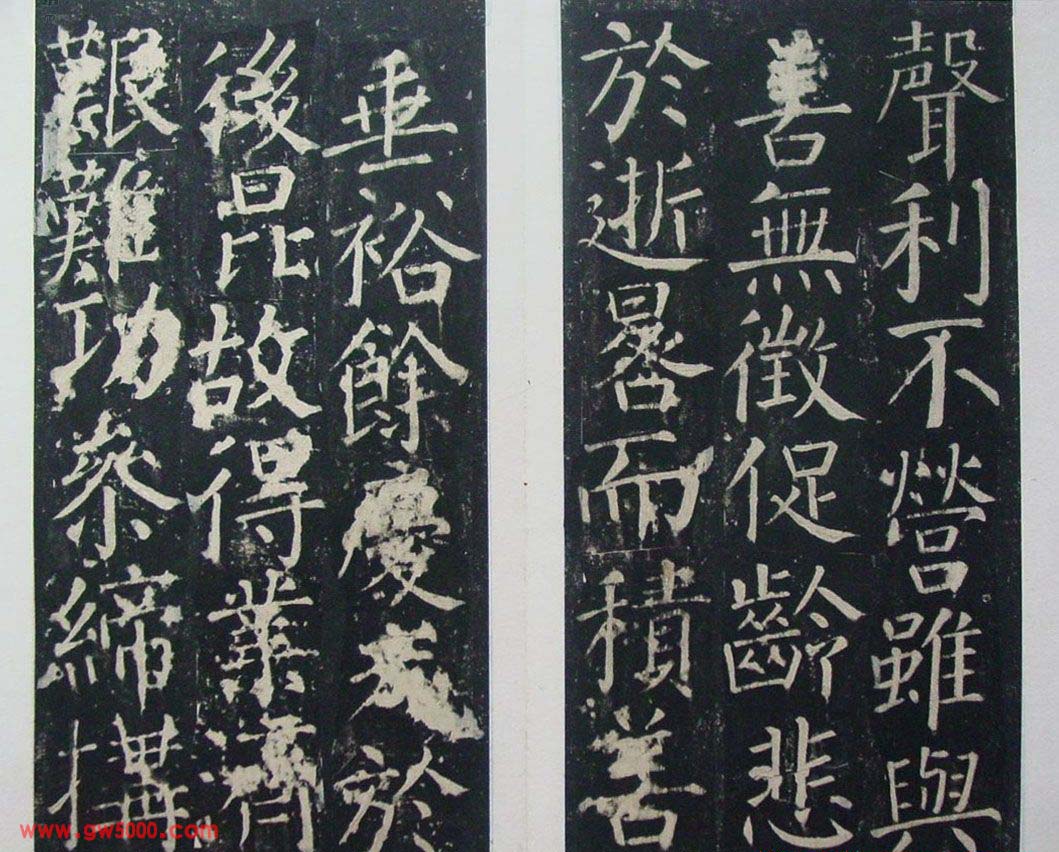 聲利不營雖與
善無徵促齡悲
於逝晷而積善
垂裕餘慶茂於
後昆故得業濟
艱難功參締構
www.gw5000.com